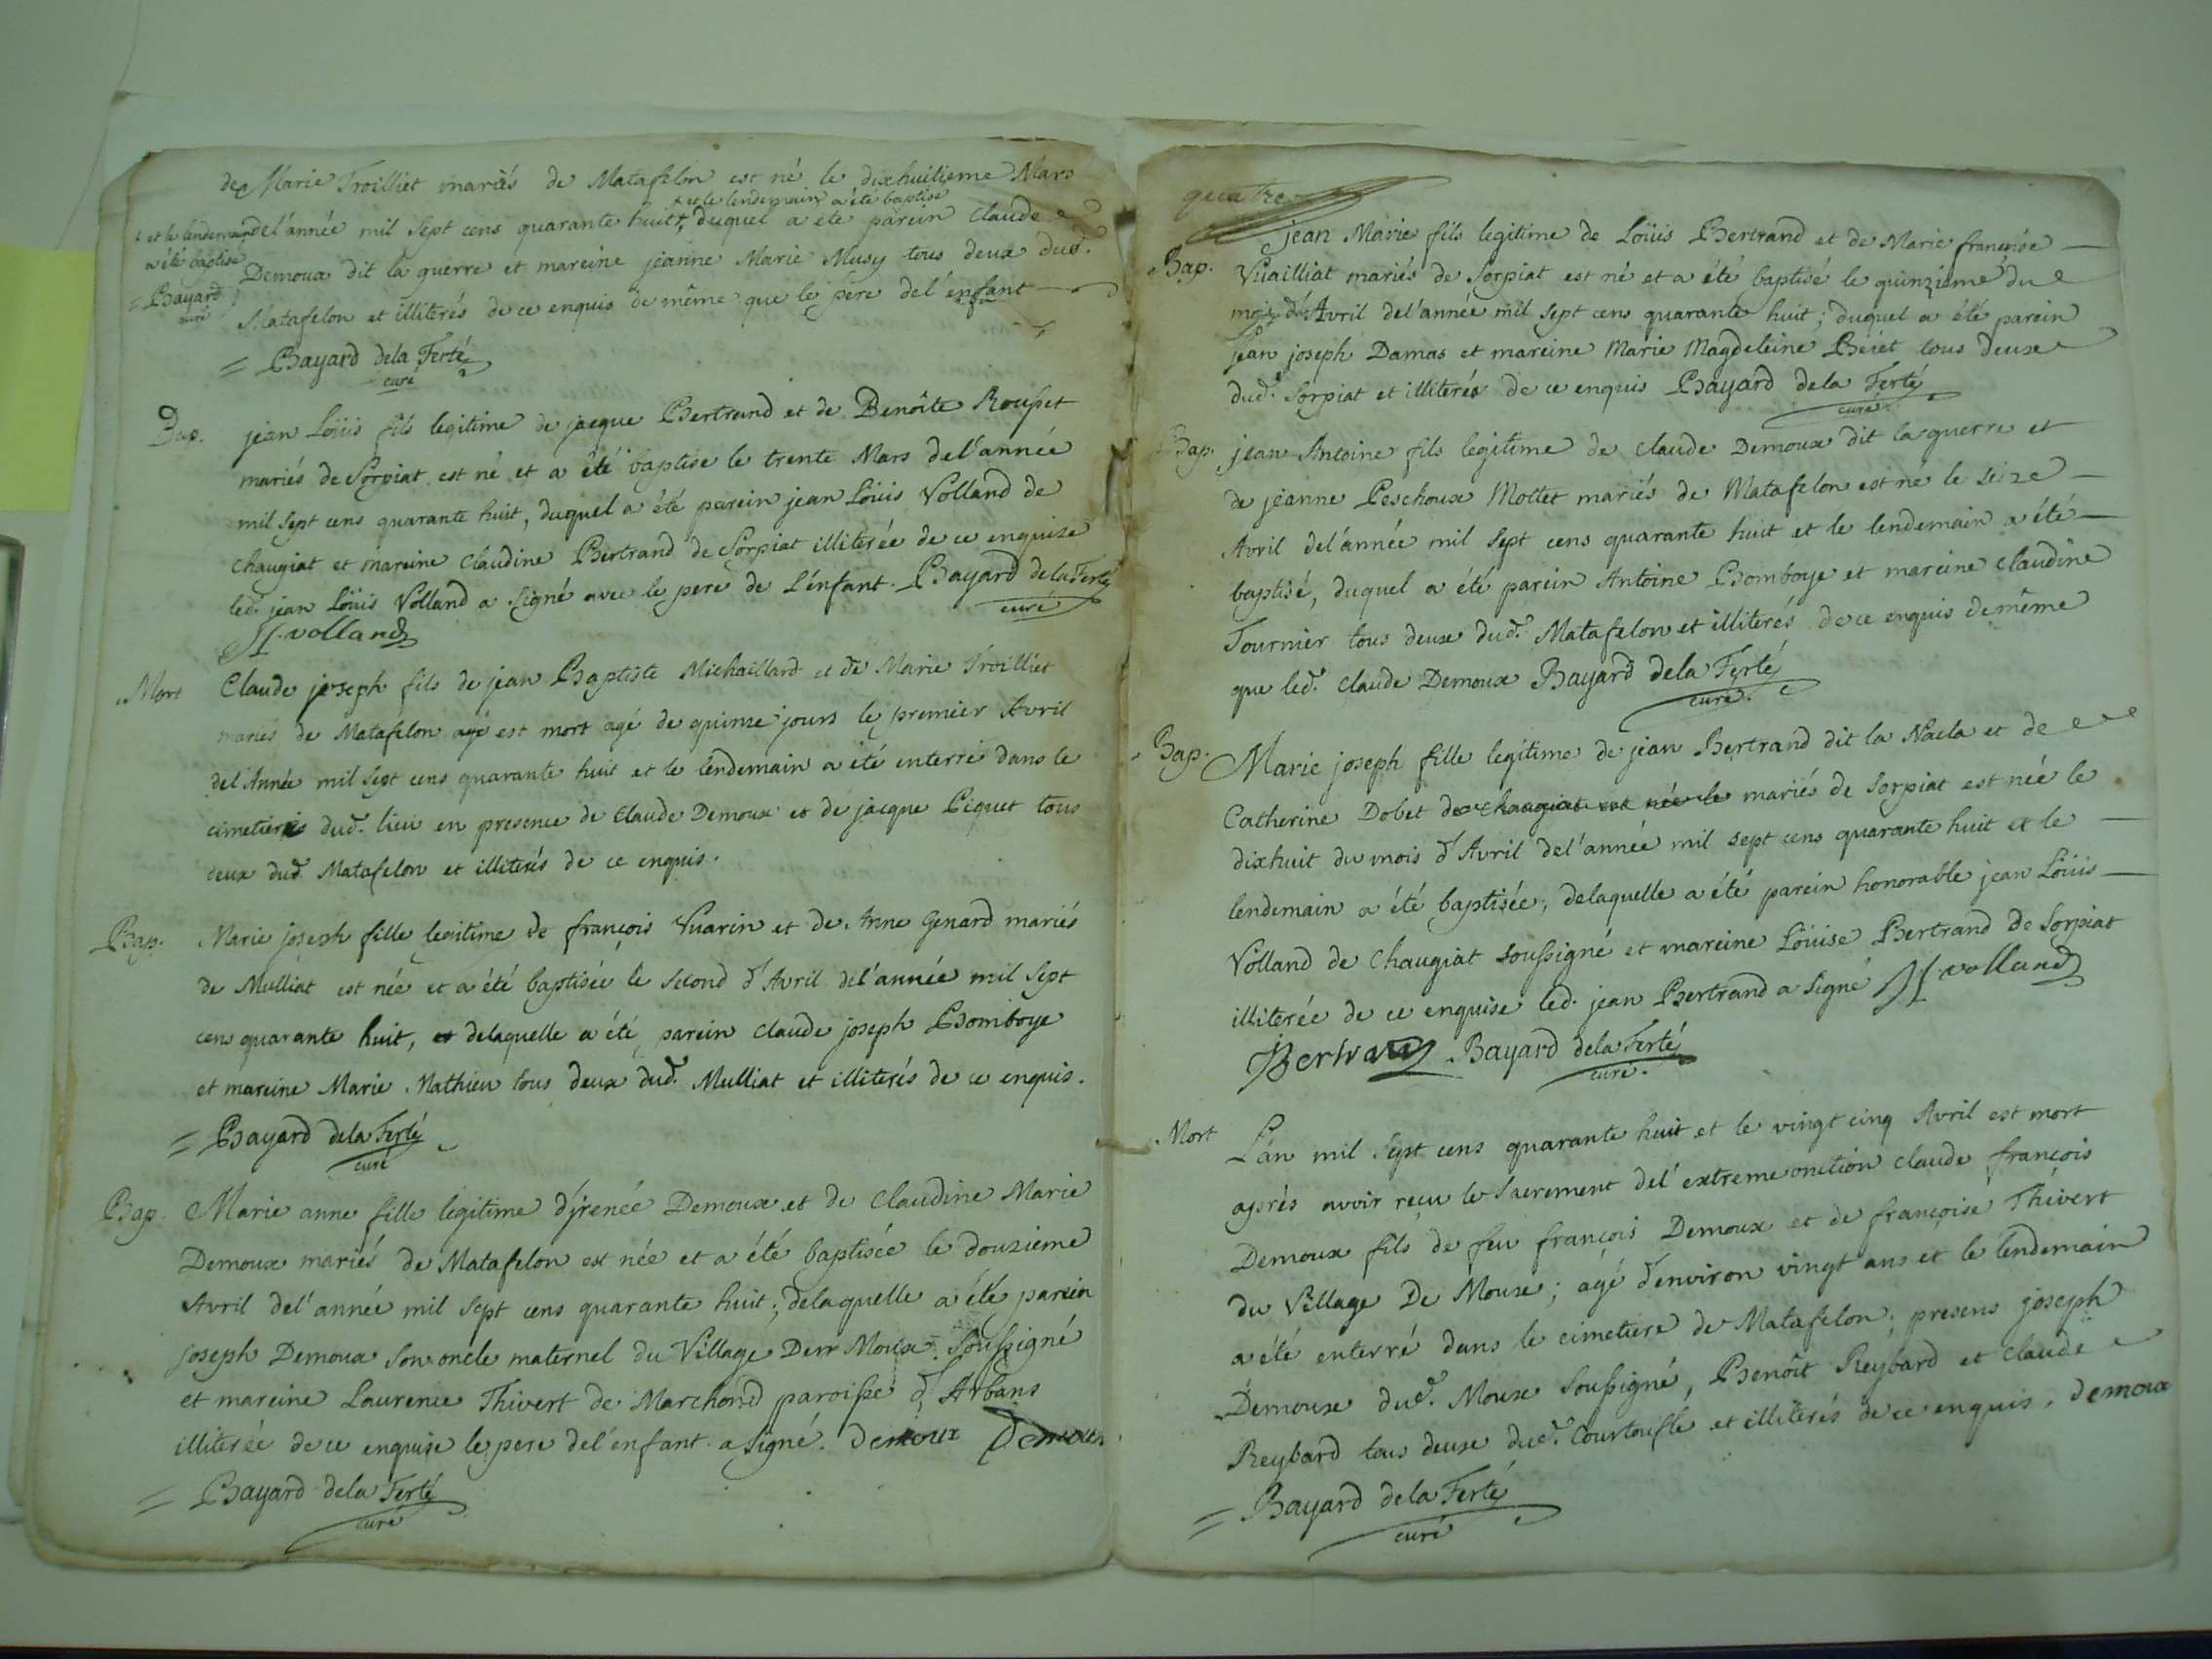 de Marie Troilliet mariés de Matafelon est né le dixhuitieme Mars
+ et le lendemain a été baptisé
del'année mil Sept cens quarante huit +, duquel a été parein Claude
+ et le lendemain
a été baptisé
= Bayard
curé
Demoux dit la guerre et mareine jeanne Marie Musy tous deux dud.
Matafelon et illiterés de ce enquis de même que le père del'enfant
= Bayard dela Ferté
curé
Bap. jean Loüis fils legitime de jacque Bertrand et de Benoîte Rouſset
mariés de Sorpiat est né et a été baptisé le trente Mars del'année
mil Sept cens quarante huit, duquel a été parein jean Loüis Volland de
Chaugiat et mareine Claudine Bertrand de Sorpiat illiterée de ce enquise
led. jean Loüis Volland a Signé avec le pere de L'enfant. Bayard dela Ferté
curé
JL volland
Mort Claude joseph fils de jean Baptiste Michaillard et de Marie Troilliet
mariés de Matafelon agé est mort agé de quinze jours le premier Avril
del'Année mil Sept cens quarante huit et le lendemain a été enterré dans le
cimetiere dud. lieu en presence de Claude Demoux et de jacque Piquet tous
deux dud. Matafelon et illiterés de ce enquis.
Bap. Marie joseph fille legitime de françois Vuarin et de Anne Genard mariés
de Mulliat est née et a été baptisée le Second d'Avril del'année mil Sept
cens quarante huit, et delaquelle a été parein Claude joseph Bomboye
et mareine Marie Mathieu tous deux dud. Mulliat et illiterés de ce enquis.
= Bayard dela Ferté
curé
Bap. Marie anne fille legitime d'jrenée Demoux et de Claudine Marie
Demoux mariés de Matafelon est née et a été baptisée le douzieme
Avril del'année mil Sept cens quarante huit; delaquelle a été parein
joseph Demoux Son oncle maternel du Village De Moux Souſsigné
et mareine Laurence Thivert de Marchond paroiſse d'Arbans
illiterée de ce enquise le pere del'enfant a Signé. Demoux Demoux
= Bayard dela Ferté
curé
quatre
jean Marie fils legitime de Loüis Bertrand et de Marie françoise
Bap. Vuailliat mariés de Sorpiat est né et a été baptisé le quinzieme du
mois d'Avril del'année mil Sept cens quarante huit; duquel a été parein
jean joseph Damas et mareine Marie Magdeleine Béret tous deux
dud. Sorpiat et illiterés de ce enquis Bayard dela Ferté
curé
Bap. jean Antoine fils legitime de Claude Demoux dit la guerre et
de jeanne Peschoux Mottet mariés de Matafelon est né le Seize
Avril del'année mil Sept cens quarante huit et le lendemain a été
baptisé, duquel a été parein Antoine Bomboye et mareine Claudine
Tournier tous deux dud. Matafelon et illiterés de ce enquis de même
que led. Claude Demoux Bayard dela Ferté
curé.
Bap. Marie joseph fille legitime de jean Bertrand dit la Naela et de
Catherine Dobet de Chaugiat est née le mariés de Sorpiat est née le
dixhuit du mois d'Avril del'année mil Sept cens quarante huit et le
lendemain a été baptisée; delaquelle a été parein honorable jean Loüis
Volland de Chaugiat souſsigné et mareine Loüise Bertrand de Sorpiat
illiterée de ce enquise led. jean Bertrand a Signé JL volland
JBertrand Bayard dela Ferté
curé.
Mort L'an mil Sept cens quarante huit et le vingt cinq Avril est mort
après avoir reçu le Sacrement del'extreme onction Claude françois
Demoux fils de feu françois Demoux et de françoise Thivert
du Village De Moux; agé d'environ vingt ans et le lendemain
a été enterré dans le cimetiere de Matafelon; presens joseph
Demoux dud. Moux Souſsigné, Benoît Reybard et Claude
Reybard tous deux dud. Courtoufle et illiterés de ce enquis. demoux
= Bayard dela Ferté
curé